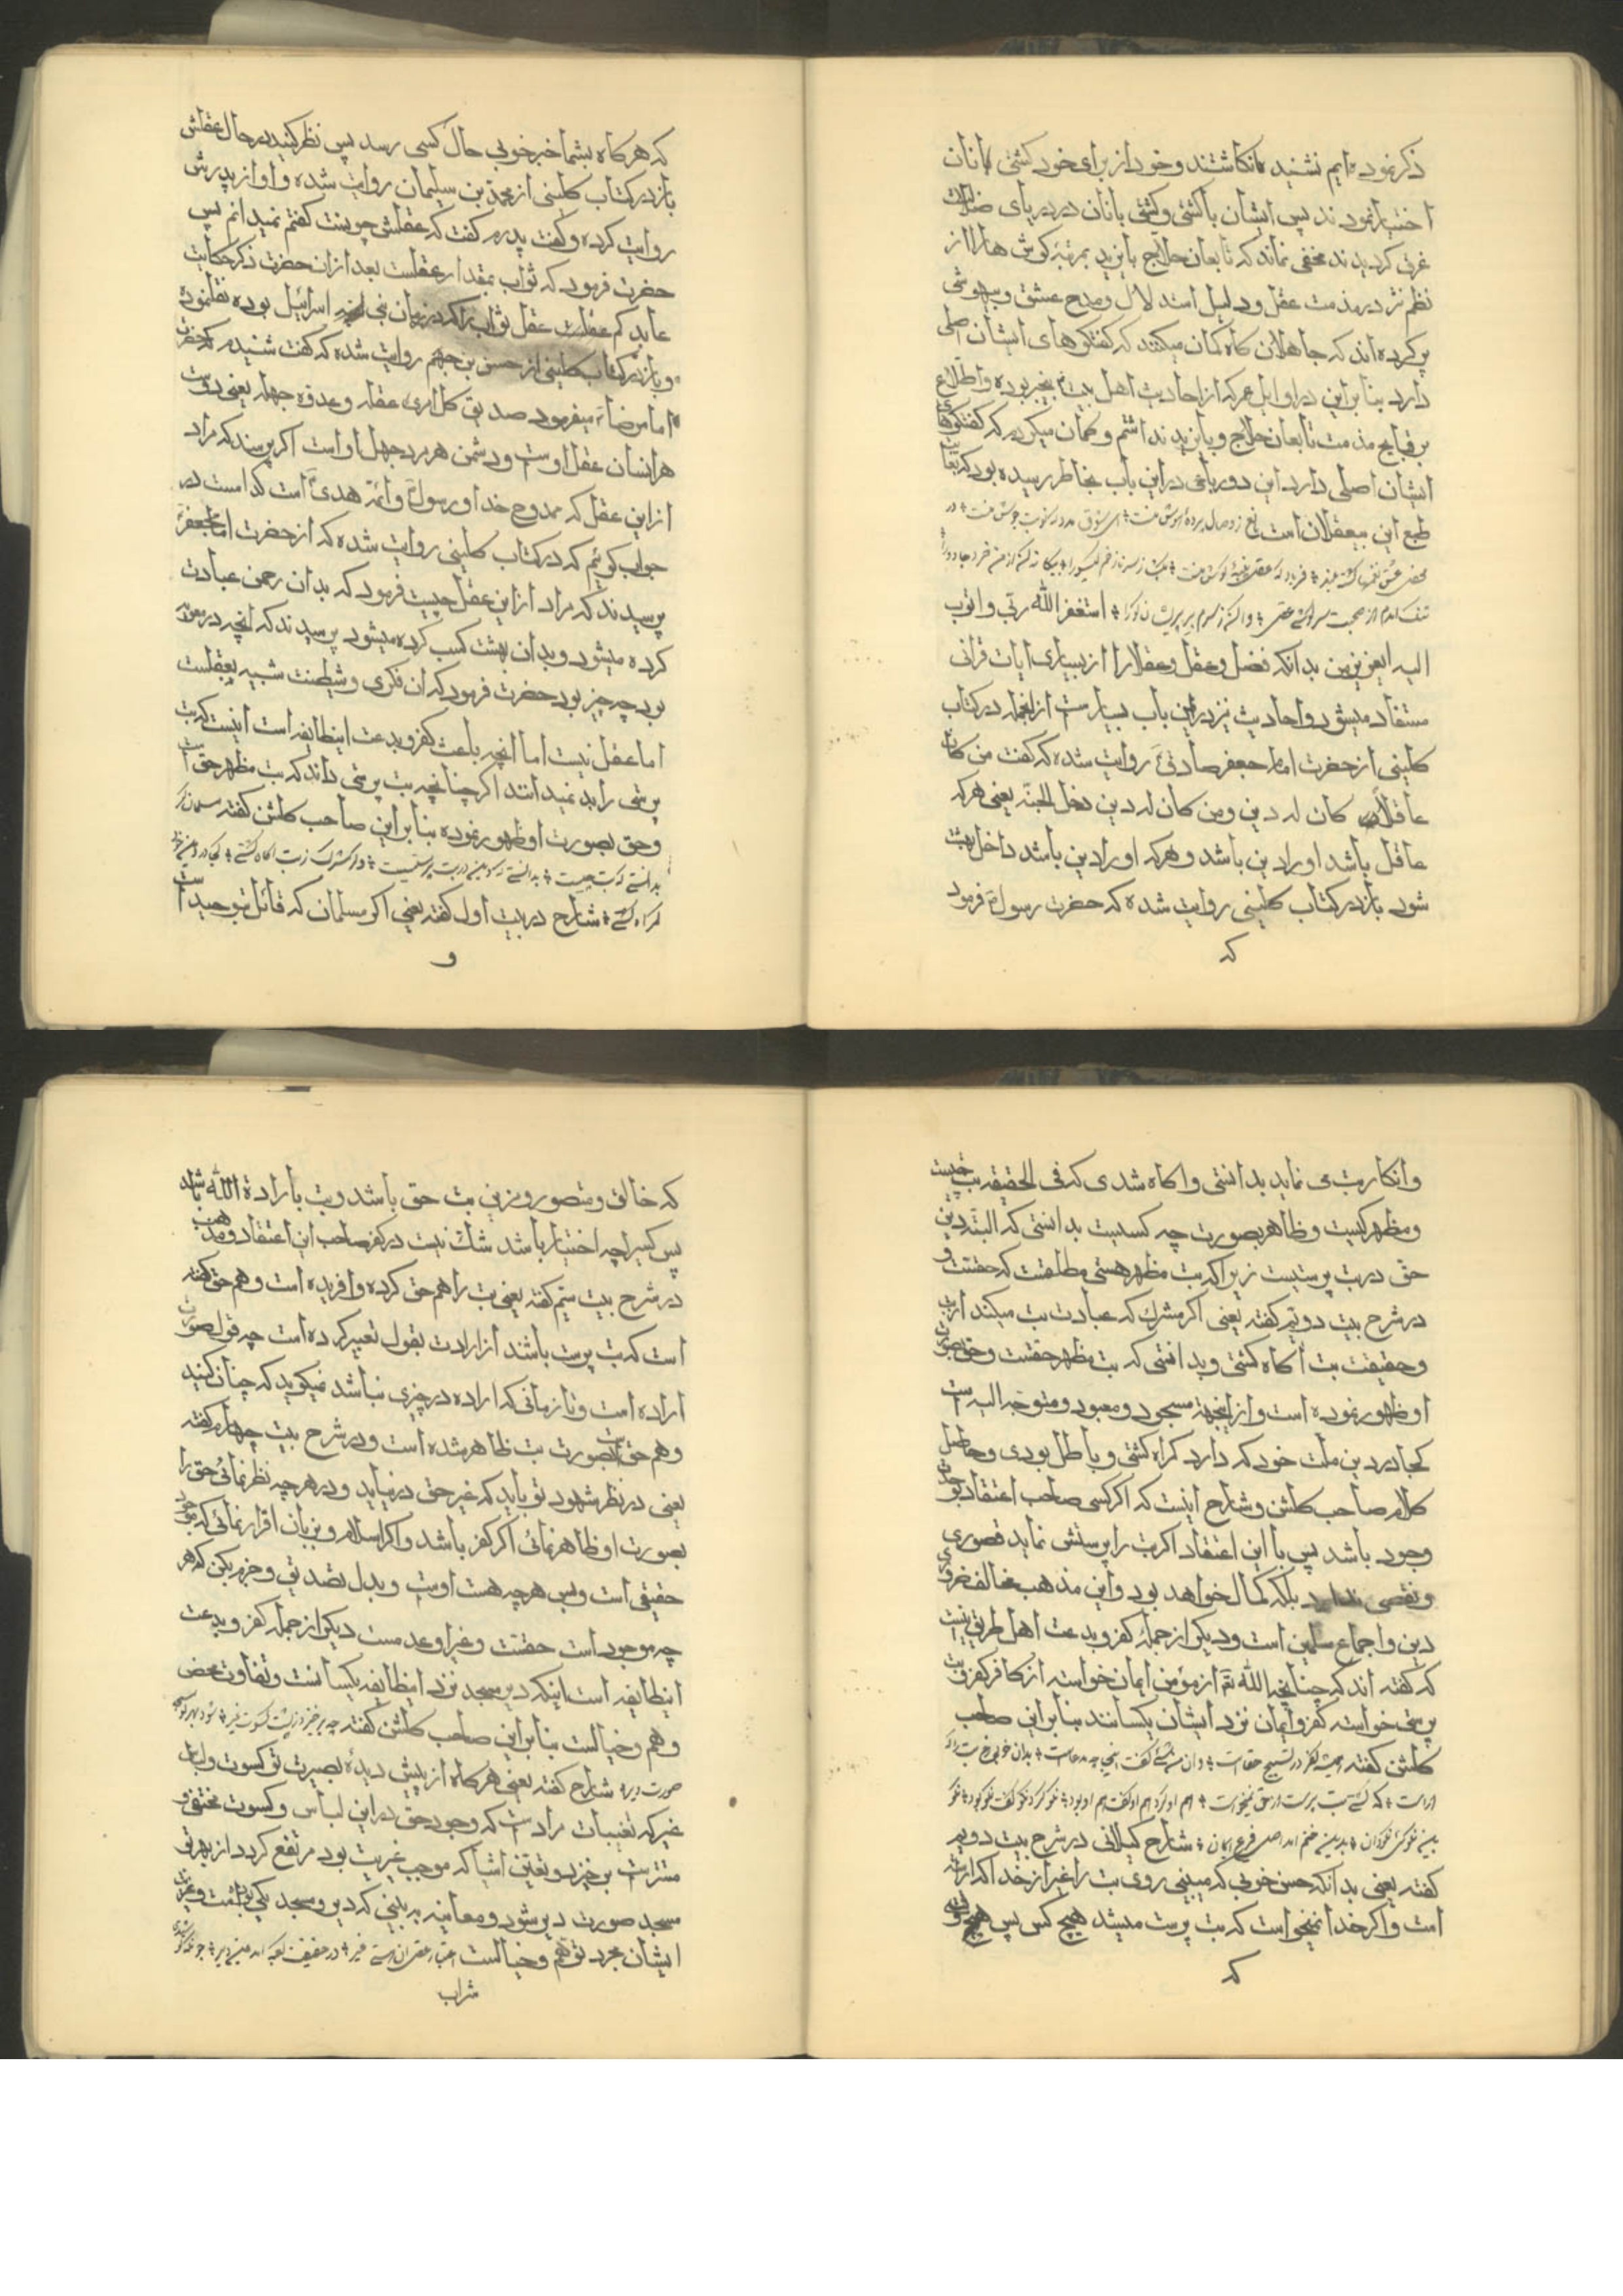 ذکر نموده ایم نشنیده انکاشتند و خود از برای خود کشتی بانان
اختیار نمودند پس ایشان با کشتی و کشتی بانان در دریای ضلالت
غرق کردیدند مخفی نماند که تابعان حلاج بایزید بمرتبه کوش هارا از
نظم نثر در مذمت عقل و دلیل استدلال و مدح عشق و بیهوشی
پر کرده اند که جاهلان کاه کمان میکنند که کفتکوهای ایشان اصلی
دارد بنابراین در اوایل عمر که از احادیث اهل بیت بیخبر بوده و اطلاع
بر قبایح مذمت تابعان حلاج و بایزید نداشتم و کمان میکردم که کفتکوهای
ایشان اصلی دارد این دو رباعی در این باب بخاطر رسیده بود که بغایت
طبع این بیعقلان است
استغفر الله ربی و اتوب
الیه ایعزیز من بدانکه فضل و عقل و عقلا را از بسیاری ایات قرانی
مستفاد میشود و احادیث نیز در این باب بسیار است از انجمله در کتاب
کلینی از حضرت امام جعفر صادق روایت شده که کفت من کان
عاقلا کان له دین و من کان له دین دخل الجنة یعنی هر که
عاقل باشد او را دین باشد و هر که او را دین باشد داخل بهشت
شود باز در کتاب کلینی روایت شده که حضرت رسول فرمود
که
که هر کاه بشما خبر خوبی حال کسی رسد پس نظر کنید در حال عقلش
باز در کتاب کلینی از محمد بن سلیمان روایت شده و او از پدرش
روایت کرده و کفت پدرم کفت که عقلش چونست کفتم نمیدانم پس
حضرت فرمود که ثواب بمقدار عقلست بعد از ان حضرت ذکر حکایت
عابد کم عقل ثواب را که در زمان بنی اسرائیل بوده نقل نموده
و باز در کتاب کلینی از حسن بن جهم روایت شده که کفت شنیدم که حضرت
امام رضا میفرمود صدیق کل امرء عقله و عدوه جهله یعنی دوست
هر انسان عقل اوست و دشمن هر مرد جهل او است اکر پرسند که مراد
از این عقل که ممدوح خدا و رسول و ائمه هدی است کدامست در
جواب کوئیم که در کتاب کلینی روایت شده که از حضرت امام جعفر
پرسیدند که مراد از این عقل چیست فرمود که بدان رحمن عبادت
کرده میشود و بدان بهشت کسب کرده میشود پرسیدند که انچه در معویه
بود چه چیز بود حضرت فرمود که ان نکری و شیطنت شبیه بعقلست
اما عقل نیست اما انچه باعث کفر و بدعت اینطایفه است اینست که بت
پرستی را بد نمیدانند اکر چنانچه بت پرستی داند که بت مظهر حق است
و حق بصورت او ظهور نموده بنابراین صاحب کلشن کفته مسلمان کر
بدانستی که بت چیست بدانستی که دین در بت پرستیست و کر مشرک ز بت اکاه کشتی کجا در دین خود
کمراه کشتی شارح در بیت اول کفته یعنی اکر مسلمان که قائل بتوحید است
و
و انکار بت می نماید بدانستی و اکاه شدی که فی الحقیقه بت چیست
و مظهر کیست و ظاهر بصورت چه کسیست بدانستی که البته دین
حق در بت پرستیست زیرا که بت مظهر هستی مطلقست که حقست و
در شرح بیت دویم کفته یعنی اکر مشرک که عبادت بت میکند از بت
و حقیقت بت آکاه کشتی و بدانستی که بت مظهر حقست و حق بصورت
او ظهور نموده است و از اینجهة مسجود و معبود و متوجه الیه است
کجا در دین ملت خود که دارد کمراه کشتی و باطل بودی و حاصل
کلام صاحب کلشن و شارح اینست که اکر کسی صاحب اعتقاد بوحدت
وجود باشد پس با این اعتقاد اکر بت را پرستش نماید قصوری
و نقصی ندارد بلکه کمال خواهد بود و این مذهب مخالف ضروری
دین و اجماع مسلمین است و دیکر از جمله کفر و بدعت اهل طریق اینست
که کفته اند که چنانچه الله تعه از مؤمن ایمان خواسته از کافر کفر و بت
پرستی خواسته کفر و ایمان نزد ایشان یکسانند بنابراین صاحب
کلشن کفته همیشه کفر در تسبیح حق است و ان من شئ کفت اینجا چه دق است بدان خوبی رخ بت را که
اراست که کشتی بت پرست ار حق نمیخواست هم او کرد هم او کفت هم او بود نکو کرد نکو کفت نکو بود نکو
بین نکو کوی نکو دان شارح کیلانی در شرح بیت دویم
کفته یعنی بدانکه حسن خوبی که میبینی روی بت را غیر از خدا که اراسته
است و اکر خدا نمیخواست که بت پرست میشد هیچ کس پس هیچ وقت
که
که خالق و متصور و مزین بت حق باشد و بت باراده الله باشد
پس کسیرا چه اختیار باشد شک نیست در کفر صاحب این اعتقاد و مذهب
در شرح بیت سیم کفته یعنی بت را هم حق کرده و افریده است و هم حق کفته
است که بت پرست باشند از ارادت بقول تعبیر کرده است چه قول صورت
اراده است و تا زمانی که اراده در چیزی نباشد نمیکوید که چنان کنید
و هم حق است بصورت بت ظاهر شده است و در شرح بیت چهارم کفته
یعنی در نظر شهود تو باید که غیر حق در نیاید و در هر چه نظر نمائی حق را
بصورت او ظاهر نمائی اکر کفر باشد و اکر اسلام و بزبان اقرار نمائی که موجود
حقیقی است و بس هر چه هست اوست و بدل تصدیق و جزم بکن که هر
چه موجود است حقست و غیر او عدمست دیکر از جمله کفر و بدعت
اینطایفه است اینکه دیر مسجد نزد اینطایفه یکسانست و تفاوت محض
وهم و خیالست بنابراین صاحب کلشن کفته چو برخیزد ز پیشت کسوت غیر شود بهر تو مسجد
صورت دیر شارح کفته یعنی هر کاه از پیش دیده بصیرت تو کسوت و لباس
غیر که تعینات مراد است که وجود حق در این لباس و کسوت مختفی و
مستتر است برخیزد و تعین اشیا که موجب غیریت بود مرتفع کردد از بهر تو
مسجد صورت دیر شود و معاینه به بینی که دیر و مسجد یکی بوده است و غیریت
ایشان مجرد توهم و خیالست
شراب